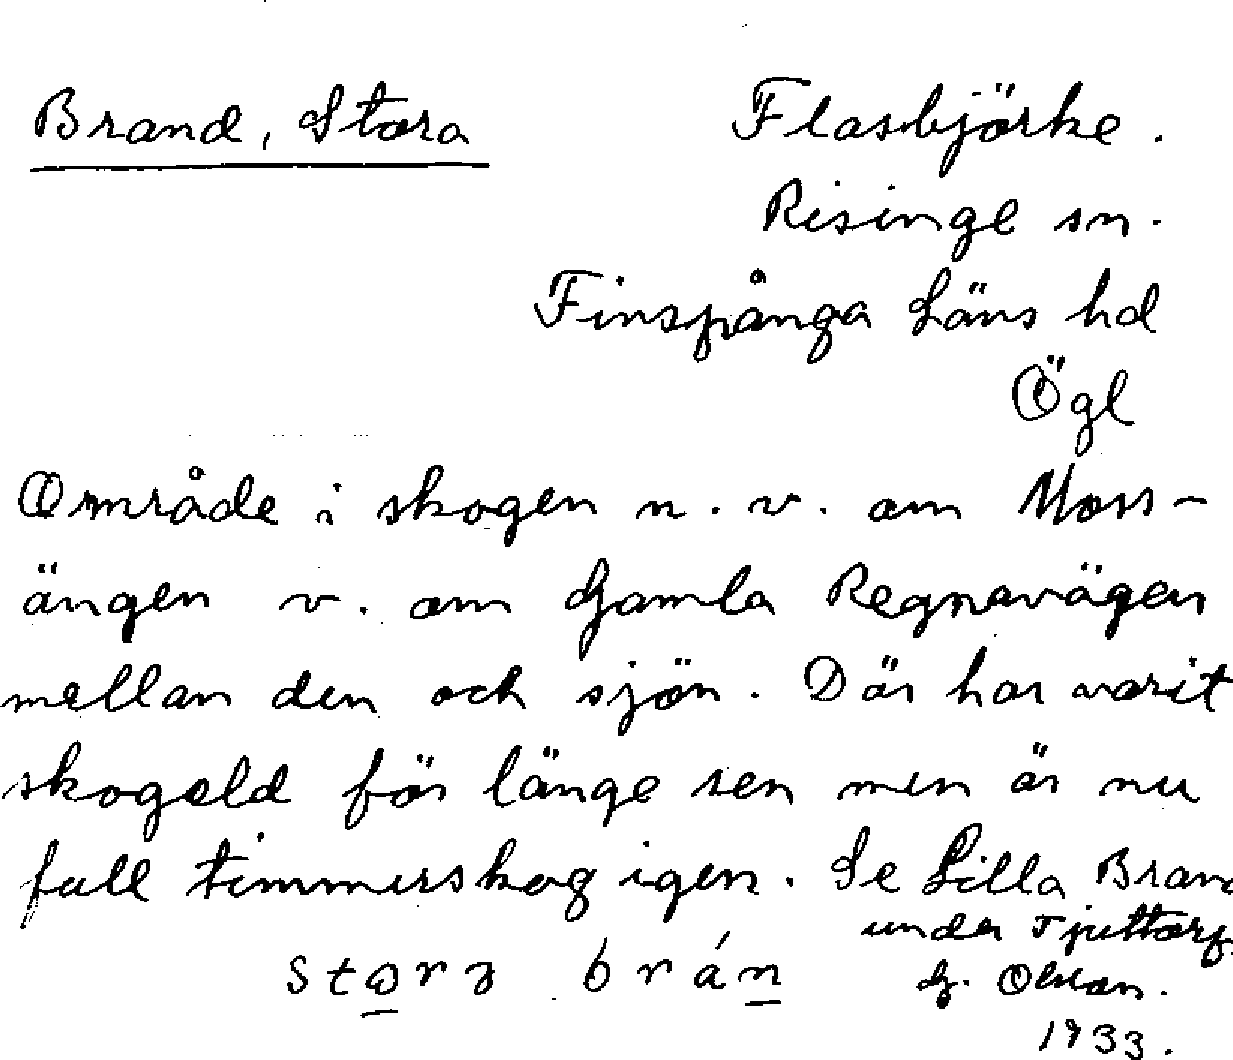 Brand, Stora
Flasbjörke.
Risinge sn.
Finspånga Läns hd
Ögl
Område i skogen n.v. om Moss-
ängen v. om Gamla Regnavägen
mellan den och sjön. Där har varit
skogeld för länge sen men är nu
full timmerskog igen. Se Lilla Brand
under Tjuttorp.
G. Olsson.
1933.